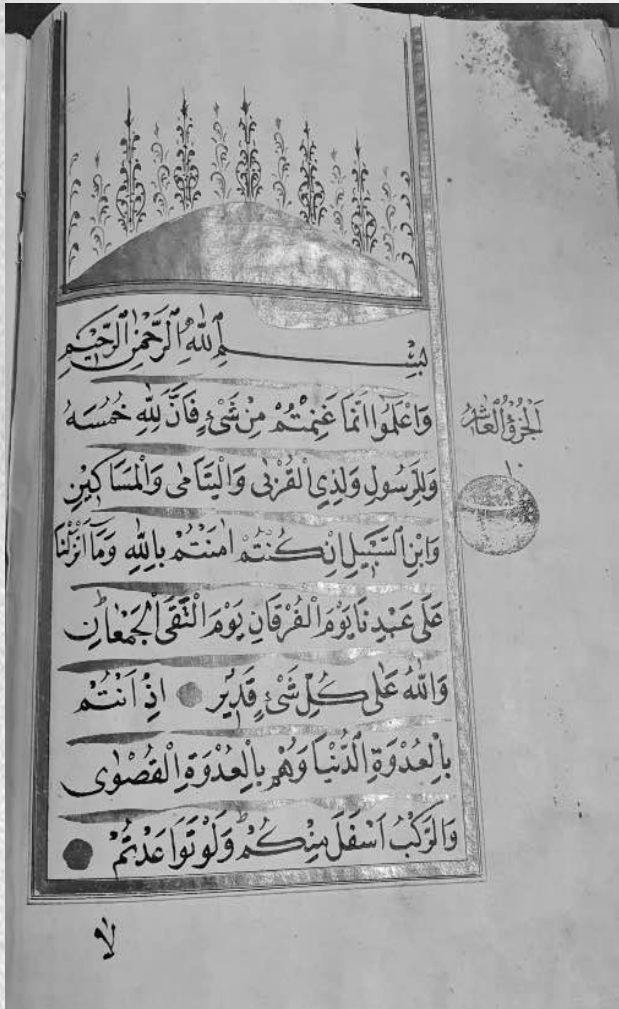 بِسْمِ اللّٰهِ الرَّحْمٰنِ الرَّحِيْمِ
وَاعْلَمُوا اَنَّمَا غَنِمْتُمْ مِنْ شَىْءٍ فَاَنَّ لِلّٰهِ خُمُسَهُ
وَلِلرَّسُولِ وَلِذِي الْقُرْبٰى وَالْيَتَامٰى وَالْمَسَاكِينِ
وَابْنِ السَّبِيلِ اِنْ كُنْتُمْ اٰمَنْتُمْ بِاللّٰهِ وَمَا اَنْزَلْنَا
عَلٰى عَبْدِنَا يَوْمَ الْفُرْقَانِ يَوْمَ الْتَقَى الْجَمْعَانِ ط
وَاللّٰهُ عَلٰى كُلِّ شَىْءٍ قَدِيْرٌ اِذْ اَنْتُمْ
بِالْعُدْوَةِ الدُّنْيَا وَهُمْ بِالْعُدْوَةِ الْقُصْوٰى
وَالرَّكْبُ اَسْفَلَ مِنْكُمْ ط وَلَوْ تَوَاعَدْتُمْ
الْجُزْؤُ الْعَاشِرُ
١٠
لا